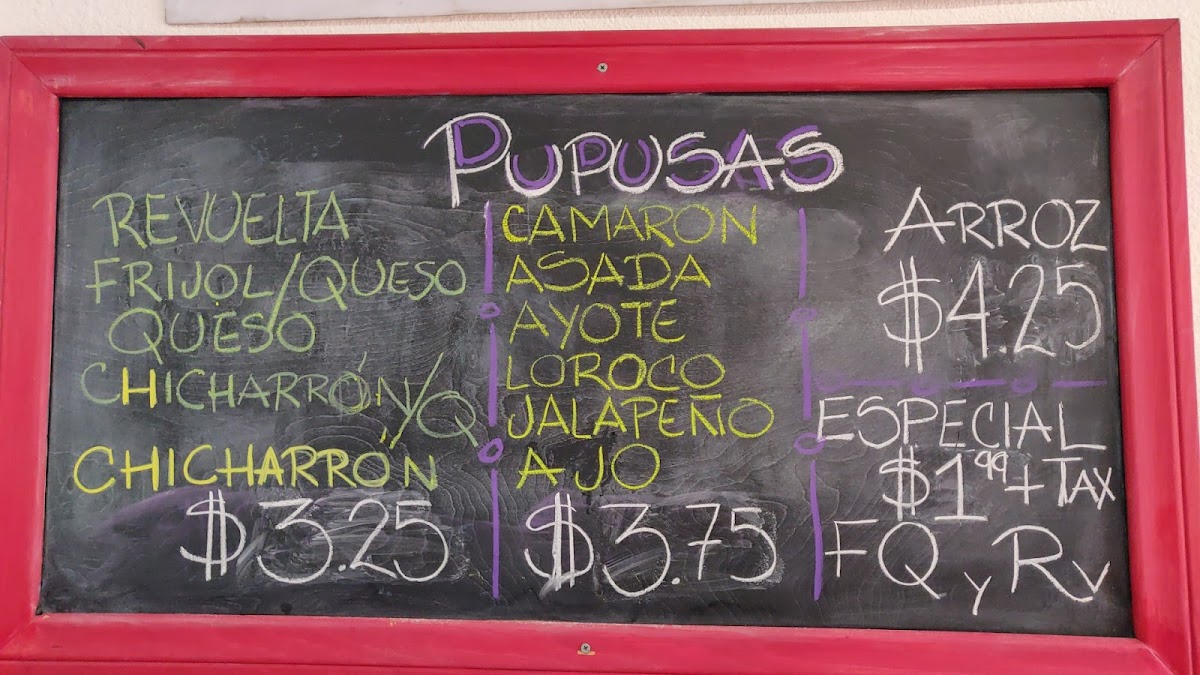 PUPUSAS
REVUELTA
FRIJOL/QUESO
QUESO
CHICHARRÓN/Q
CHICHARRÓN
$3.25
CAMARON
ASADA
AYOTE
LOROCO
JALAPEÑO
AJO
$3.75
ARROZ
$4.25
ESPECIAL
$1.99 + TAX
FQ y Rv